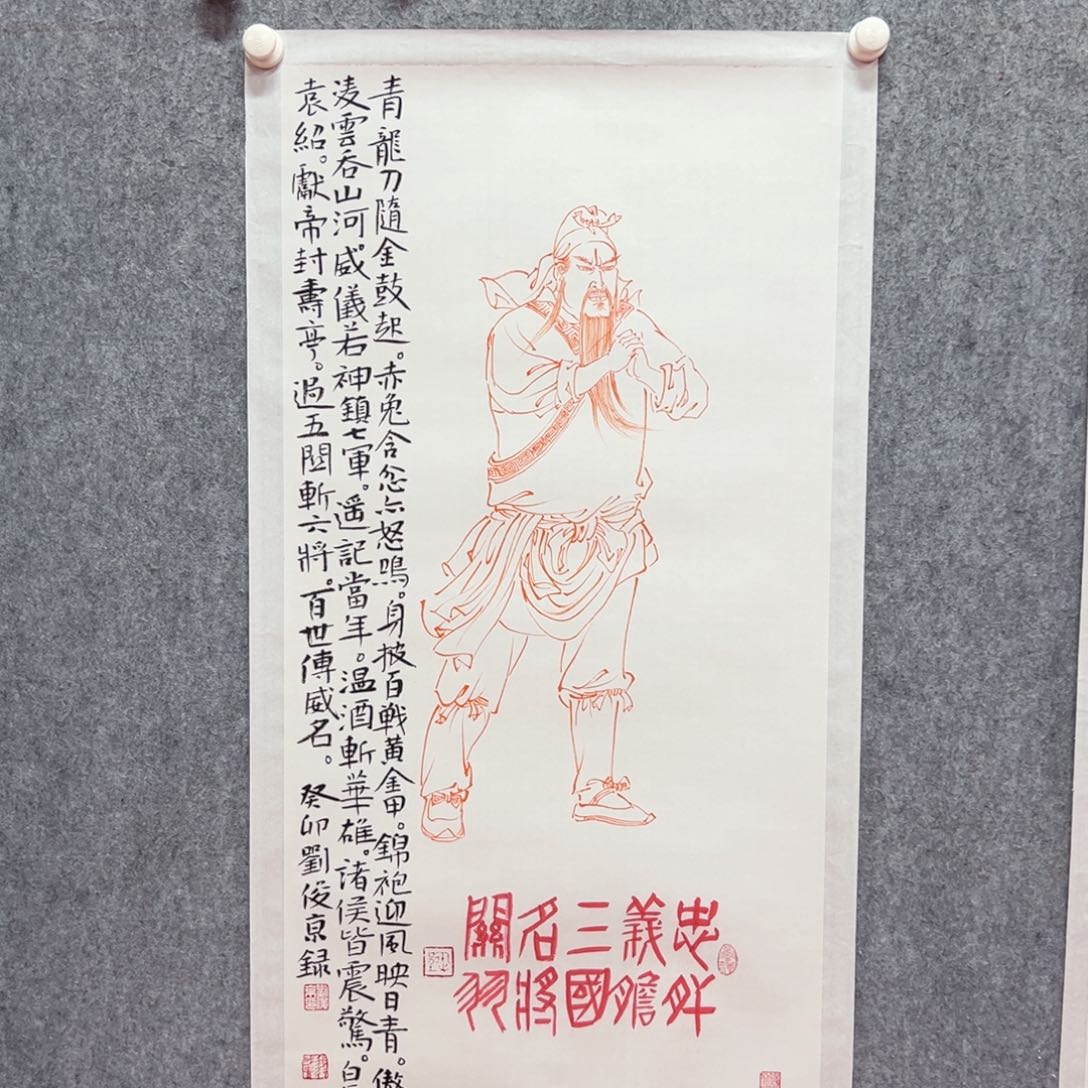 忠肝
義膽
三國
名將
關羽
青龍刀隨金鼓起。赤兔含忿亦怒鳴。身披百戰黄金甲。錦袍迎風映日青。傲
凌雲吞山河。威儀若神鎮七軍。遥記當年。温酒斬華雄。諸侯皆震驚。白
袁紹。獻帝封壽亭。過五関斬六將。百世傳威名。癸卯劉俊京録